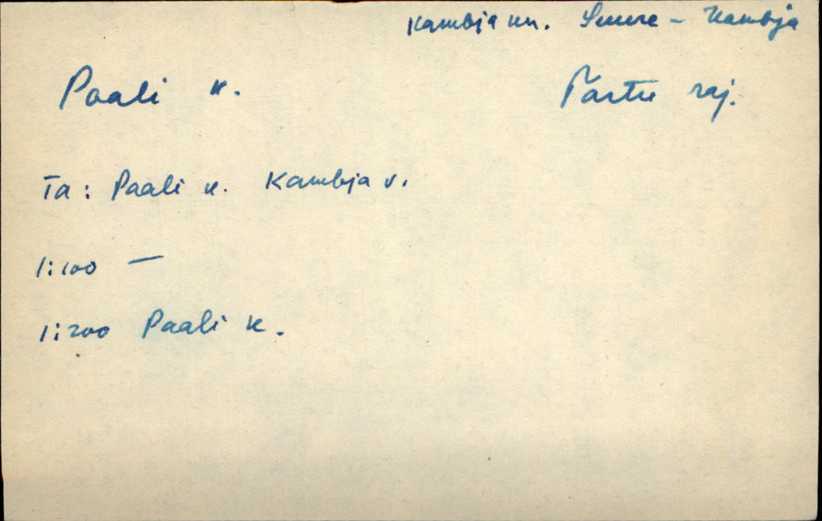 Kambja kn. Suure-Kambja
Paali k. Tartu raj.
Ta: Paali k. Kambja v.
1:100 —
1:200 Paali k.